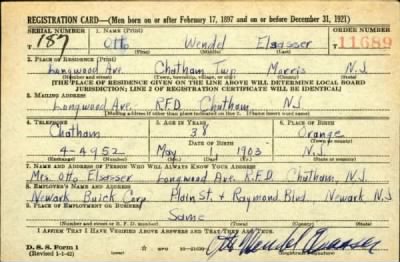 REGISTRATION CARD—(Men born on or after February 17, 1897 and on or before December 31, 1921)
SERIAL NUMBER 1. NAME (Print) ORDER NUMBER
187 Otto Wendel Elsasser 11689
(First) (Middle) (Last)
2. PLACE OF RESIDENCE (Print)
Longwood Ave. Chatham Twp Morris N.J.
(Number and street) (Town, township, village, or city) (County) (State)
[THE PLACE OF RESIDENCE GIVEN ON THE LINE ABOVE WILL DETERMINE LOCAL BOARD
JURISDICTION; LINE 2 OF REGISTRATION CERTIFICATE WILL BE IDENTICAL]
3. MAILING ADDRESS
Longwood Ave. R.F.D. Chatham, N.J
[Mailing address if other than place indicated on line 2. If same insert word same]
4. TELEPHONE 5. AGE IN YEARS 6. PLACE OF BIRTH
Chatham 38 Orange
DATE OF BIRTH
4-4952 May 1 1903 N.J.
7. NAME AND ADDRESS OF PERSON WHO WILL ALWAYS KNOW YOUR ADDRESS
Mrs. Otto Elsasser Longwood Ave. R.F.D. Chatham, N.J.
8. EMPLOYER'S NAME AND ADDRESS
Newark Buick Corp. Plain St. & Raymond Blvd., Newark N.J
9. PLACE OF EMPLOYMENT OR BUSINESS
Same
I AFFIRM THAT I HAVE VERIFIED ABOVE ANSWERS AND THAT THEY ARE TRUE.
D. S. S. Form 1
(Revised 1-1-42)
Otto Wendel Elsasser
(Registrant's signature)